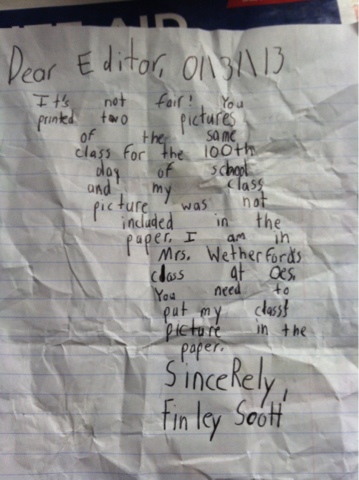 Dear Editor, 01/31/13
It's not fair! You
printed two pictures
of the same
class for the 100th
day of school
and my class
picture was not
included in the
paper. I am in
Mrs. Wetherford's
class at Oes.
You need to
put my class!
picture in the
paper.
SinceRely,
Finley Scott